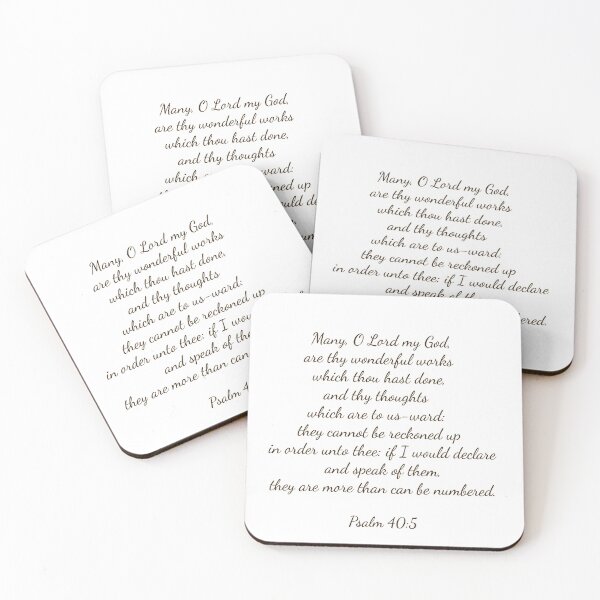 Many, O Lord my God,
are thy wonderful works
which thou hast done,
and thy thoughts
which are to us-ward:
be reckoned up
if I would
Many, O Lord my God,
are thy wonderful works
which thou hast done,
and thy thoughts
which are to us-ward:
they cannot be reckoned up
in order unto thee: if I would declare
and speak of
numbered.
Many, O Lord my God,
are thy wonderful works
which thou hast done,
and thy thoughts
which are to us-ward:
they cannot be reckoned up
in order unto thee: if I
and speak of
they are more than can
Psalm
Many, O Lord my God,
are thy wonderful works
which thou hast done,
and thy thoughts
which are to us-ward:
they cannot be reckoned up
in order unto thee: if I would declare
and speak of them,
they are more than can be numbered.
Psalm 40:5